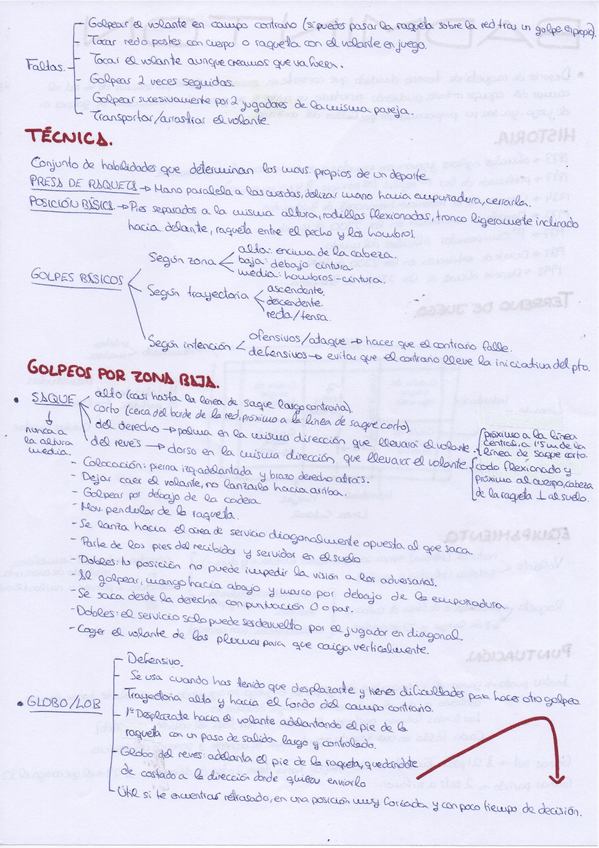 - Golpear el volante en campo contrario (sí puedo pasar la raqueta sobre la red tras un golpe propio).
- Tocar red o postes con cuerpo o raqueta con el volante en juego.
Faltas - Tocar el volante aunque creamos que va fuera.
- Golpear 2 veces seguidas.
- Golpear sucesivamente por 2 jugadores de la misma pareja.
- Transportar/arrastrar el volante.
TÉCNICA.
Conjunto de habilidades que determinan los movs. propios de un deporte
PRESA DE RAQUETA → Mano paralela a las cuerdas, deslizar mano hacia empuñadura, cerrarla.
POSICIÓN BÁSICA → Pies separados a la misma altura, rodillas flexionadas, tronco ligeramente inclinado
hacia delante, raqueta entre el pecho y los hombros.
GOLPES BÁSICOS
Según zona
alta: encima de la cabeza.
baja: debajo cintura.
media: hombros-cintura.
Según trayectoria
ascendente.
descendente.
recta/tensa.
Según intención
ofensivos/ataque → hacer que el contrario falle.
defensivos → evitar que el contrario lleve la iniciativa del pto.
GOLPEOS POR ZONA BAJA.
• SAQUE
↓
nunca a
la altura
media.
alto (casi hasta la línea de saque largo contraria).
corto (cerca del borde de la red, próximo a la línea de saque corto)
del derecho → palma en la misma dirección que llevará el volante
próximo a la línea
central, a 1'5m de la
línea de saque corto.
del revés → dorso en la misma dirección que llevará el volante
codo flexionado y
próximo al cuerpo, cabeza
de la raqueta ⊥ al suelo.
- Colocación: pierna izq. adelantada y brazo derecho atrás.
- Dejar caer el volante, no lanzarlo hacia arriba.
- Golpear por debajo de la cadera
- Mov pendular de la raqueta.
- Se lanza hacia el área de servicio diagonalmente opuesta al que saca.
- Parte de los pies del recibidor y servidor en el suelo
- Dobles: la posición no puede impedir la visión a los adversarios.
- Al golpear, mango hacia abajo y marco por debajo de la empuñadura.
- Se saca desde la derecha con puntuación 0 o par.
- Dobles: el servicio solo puede ser devuelto por el jugador en diagonal.
- Coger el volante de las plumas para que caiga verticalmente.
• GLOBO/LOB
- Defensivo.
- Se usa cuando has tenido que desplazarte y tienes dificultades para hacer otro golpeo
- Trayectoria alta y hacia el fondo del campo contrario.
- 1º Desplazarte hacia el volante adelantando el pie de la
raqueta con un paso de salida largo y controlado.
- Globo del revés: adelanta el pie de la raqueta, quedándote
de costado a la dirección donde quieres enviarlo
- Útil si te encuentras retrasado, en una posición muy forzada y con poco tiempo de decisión.